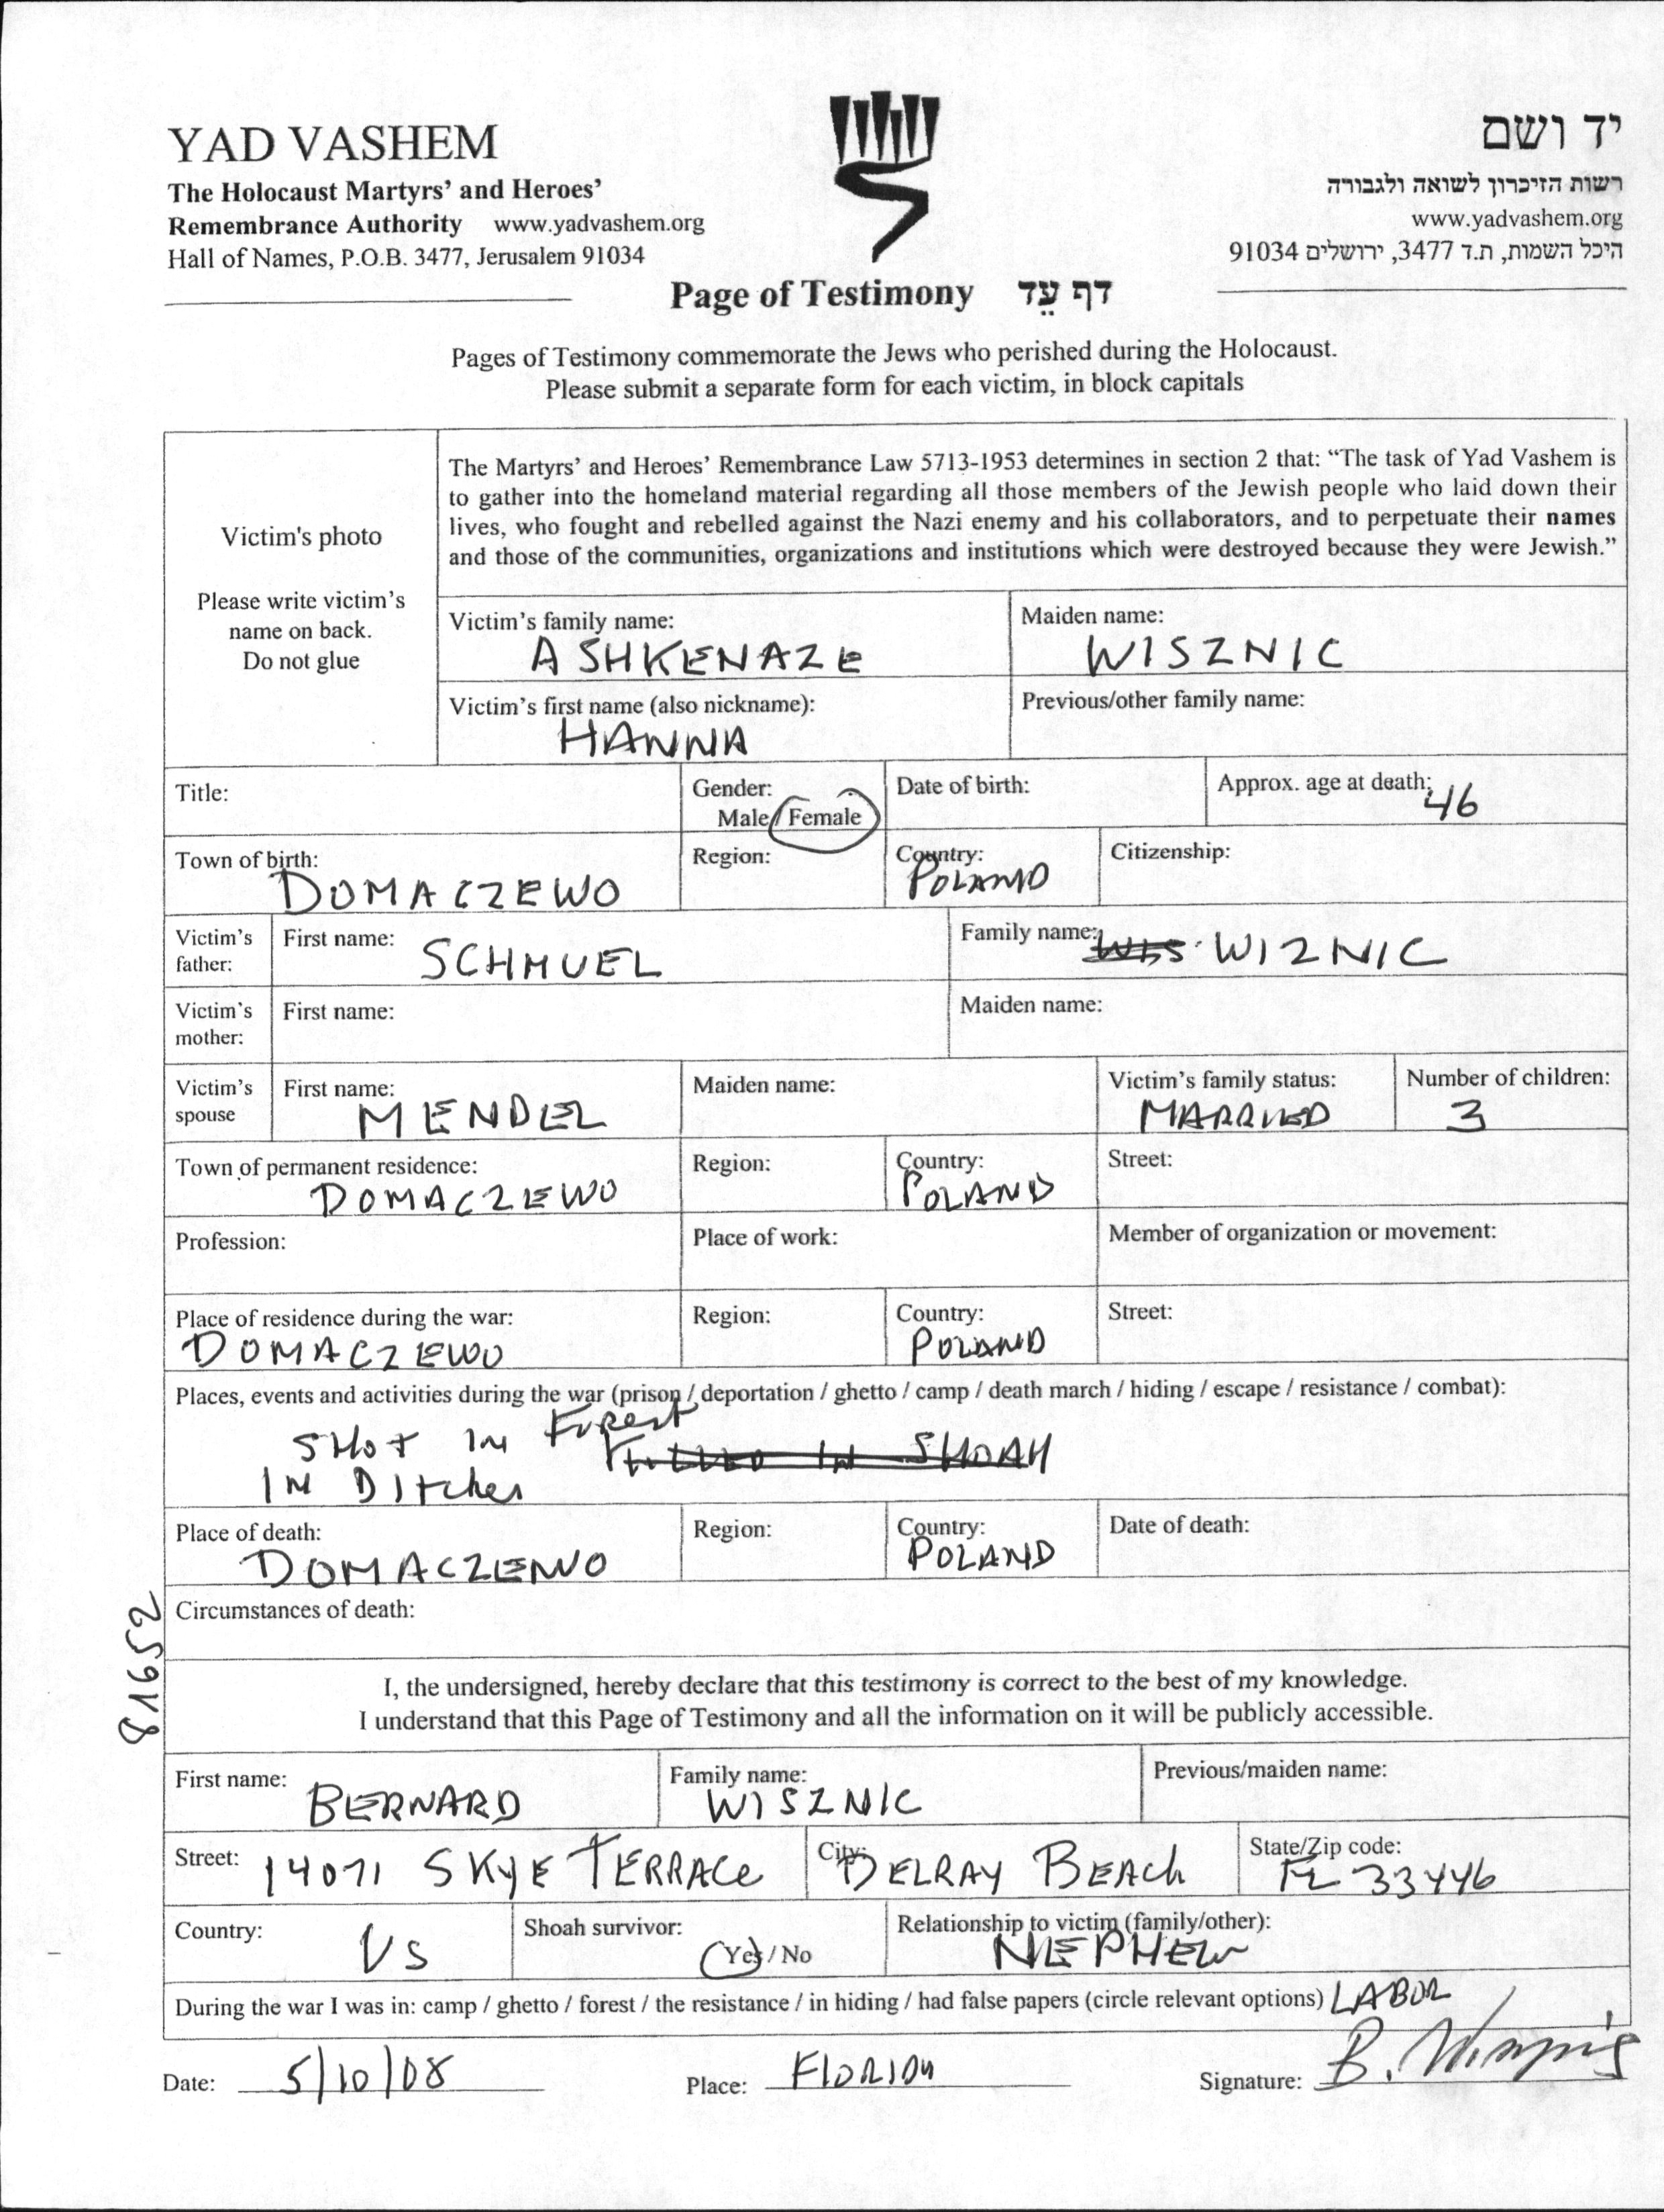 YAD VASHEM
The Holocaust Martyrs' and Heroes'
Remembrance Authority www.yadvashem.org
Hall of Names, P.O.B. 3477, Jerusalem 91034
יד ושם
רשות הזיכרון לשואה ולגבורה
www.yadvashem.org
היכל השמות, ת.ד 3477, ירושלים 91034
Page of Testimony דף עֵד
Pages of Testimony commemorate the Jews who perished during the Holocaust.
Please submit a separate form for each victim, in block capitals
Victim's photo
Please write victim's
name on back.
Do not glue
The Martyrs' and Heroes' Remembrance Law 5713-1953 determines in section 2 that: “The task of Yad Vashem is
to gather into the homeland material regarding all those members of the Jewish people who laid down their
lives, who fought and rebelled against the Nazi enemy and his collaborators, and to perpetuate their names
and those of the communities, organizations and institutions which were destroyed because they were Jewish.”
Victim's family name: Maiden name:
ASHKENAZE WISZNIC
Victim's first name (also nickname): Previous/other family name:
HANNA
Title: Gender: Date of birth: Approx. age at death:
Male / Female 46
Town of birth: Region: Country: Citizenship:
DOMACZEWO POLAND
Victim's father: First name: SCHMUEL Family name: WIS WIZNIC
Victim's mother: First name: Maiden name:
Victim's spouse First name: Maiden name: Victim's family status: Number of children:
MENDEL MARRIED 3
Town of permanent residence: Region: Country: Street:
DOMACZEWO POLAND
Profession: Place of work: Member of organization or movement:
Place of residence during the war: Region: Country: Street:
DOMACZEWO POLAND
Places, events and activities during the war (prison / deportation / ghetto / camp / death march / hiding / escape / resistance / combat):
SHOT IN Forest KILLED IN SHOAH
IN DItches
Place of death: Region: Country: Date of death:
DOMACZEWO POLAND
Circumstances of death:
81652
I, the undersigned, hereby declare that this testimony is correct to the best of my knowledge.
I understand that this Page of Testimony and all the information on it will be publicly accessible.
First name: Family name: Previous/maiden name:
BERNARD WISZNIC
Street: 14071 SKYE TERRACE City: DELRAY BEACH State/Zip code: FL 33446
Country: US Shoah survivor: Yes / No Relationship to victim (family/other): NEPHEW
During the war I was in: camp / ghetto / forest / the resistance / in hiding / had false papers (circle relevant options) LABOR
Date: 5/10/08 Place: FLORIDA Signature: B.